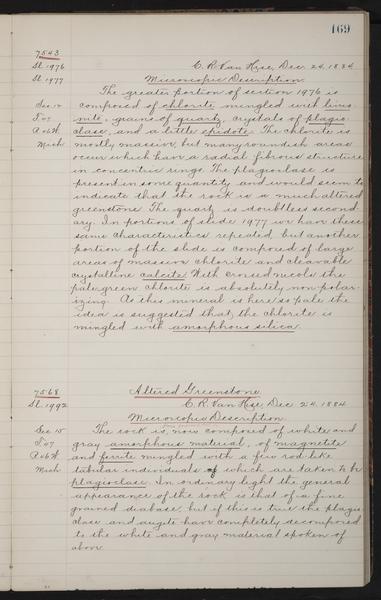 169
7543
Sl. 1976 C. R. Van Hise, Dec. 24, 1884
Sl. 1977 Microscopic Description.
The greater portion of section 1976 is
Sec. 12 composed of chlorite mingled with limo-
T 47 nite, grains of quartz, crystals of plagio-
R 46 W clase, and a little epidote. The chlorite is
Mich mostly massive, but many roundish areas
occur which have a radial fibrous structure
in concentric rings. The plagioclase is
present in some quantity and would seem to
indicate that the rock is a much altered
greenstone. The quartz is doubtless second
ary. In portions of slide 1977 we have these
same characteristics repeated, but another
portion of the slide is composed of large
areas of massive chlorite and cleavable
crystalline calcite. With crossed nicols the
pale green chlorite is absolutely non-polar-
izing. As this mineral is here so pale the
idea is suggested that the chlorite is
mingled with amorphous silica.
7568 Altered Greenstone.
Sl. 1992 C. R. Van Hise, Dec. 24, 1884
Microscopic Description.
Sec 15 The rock is now composed of white and
T 47 gray amorphous material, of magnetite
R 46 W and ferrite mingled with a few rod like
Mich tabular individuals of which are taken to be
plagioclase. In ordinary light the general
appearance of the rock is that of a fine
grained diabase, but if this is true the plagio
clase and augite have completely decomposed
to the white and gray material spoken of
above.